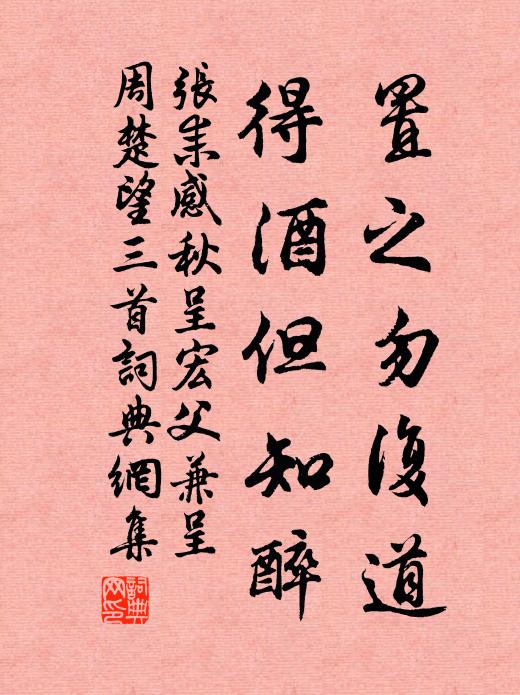 置之勿復道
得酒但知醉
張耒感秋呈宏父兼呈
周楚望三首詞典網集
詞典網印